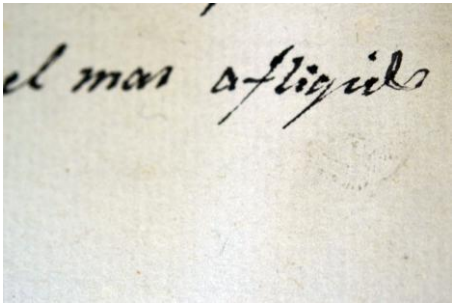 el mas afligido